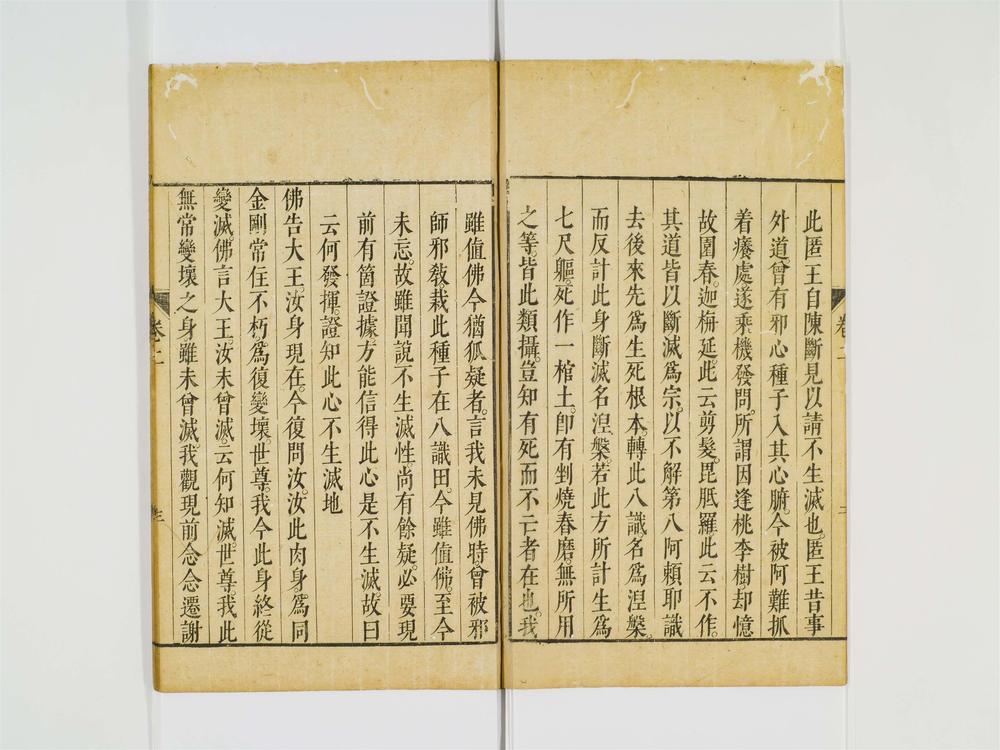 此匿王自陳斷見以請不生滅也。匿王昔事
外道。曾有邪心種子入其心腑。今被阿難抓
着癢處遂乘機發問。所謂因逢桃李樹。却憶
故園春。迦栴延。此云剪髮。毘胝羅此云不作。
其道皆以斷滅爲宗。以不解第八阿賴耶識
去後來先爲生死根本。轉此八識。名爲涅槃。
而反計此身斷滅名涅槃。若此方所計生爲
七尺軀。死作一棺土。卽有剉燒舂磨。無所用
之等。皆此類攝。豈知有死而不亡者在也。我
卷二
二
雖值佛今猶狐疑者。言我未見佛時。曾被邪
師邪教栽此種子在八識田。今雖值佛。至今
未忘。故雖聞說不生滅性。尚有餘疑。必要現
前有箇證據方能信得此心是不生滅。故曰
云何發揮。證知此心不生滅地
佛告大王。汝身現在。今復問汝。汝此肉身。爲同
金剛常住不朽。爲復變壞。世尊。我今此身終從
變滅。佛言大王。汝未曾滅。云何知滅。世尊。我此
無常變壞之身雖未曾滅。我觀現前念念遷謝
卷二
三